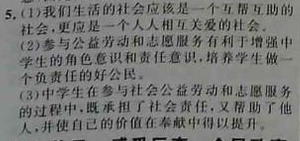 5.(1)我们生活的社会应该是一个互帮互助的
社会,更应是一个人人相互关爱的社会。
(2)参与公益劳动和志愿服务有利于增强中
学生的角色意识和责任意识,培养学生做一
个负责任的好公民。
(3)中学生在参与社会公益劳动和志愿服务
的过程中,既承担了社会责任,又帮助了他
人,并使自己的价值在奉献中得以提升。